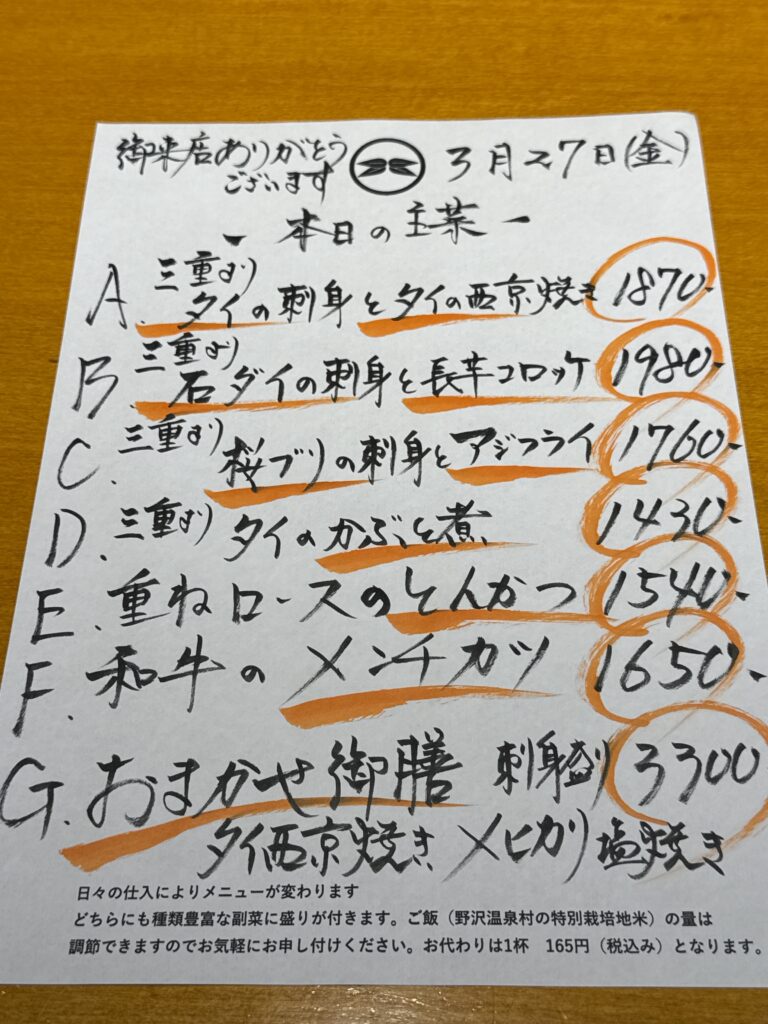 御来店ありがとう
ございます
3月27日(金)
- 本日の主菜 -
A. 三重より
タイの刺身とタイの西京焼き 1870-
B. 三重より
石ダイの刺身と長芋コロッケ 1980-
C. 三重より
桜ブリの刺身とアジフライ 1760-
D. 三重より タイのかぶと煮 1430-
E. 重ねロースのとんかつ 1540-
F. 和牛のメンチカツ 1650-
G. おまかせ御膳 刺身盛り 3300
タイ西京焼き メヒカリ塩焼き
日々の仕入によりメニューが変わります
どちらにも種類豊富な副菜に盛りが付きます。ご飯（野沢温泉村の特別栽培地米）の量は
調節できますのでお気軽にお申し付けください。お代わりは1杯　165円（税込み）となります。